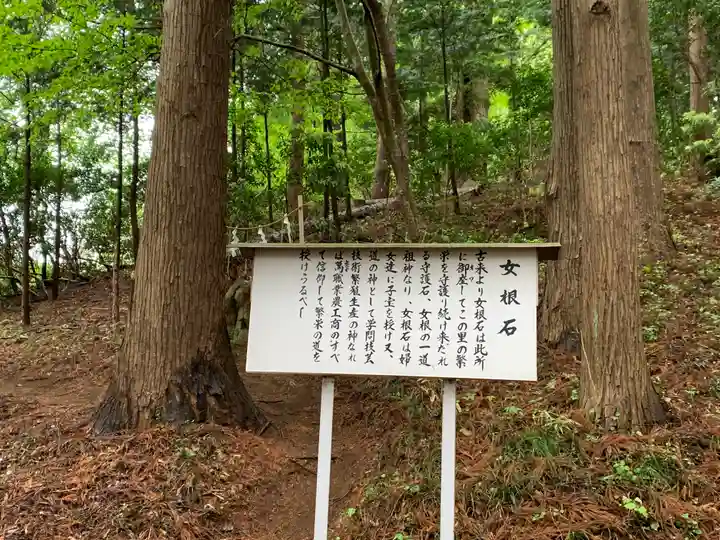 女根石
古来より女根石は此所
に御座してこの里の繁
栄を守護り続け来たれ
る守護石、女根の一道
祖神なり、女根石は婦
女達に子宝を授け又、
道の神として学問技芸
技術繁殖生産の神なれ
は萬職業農工商のすべ
て信仰して繁栄の道を
授けうるべし